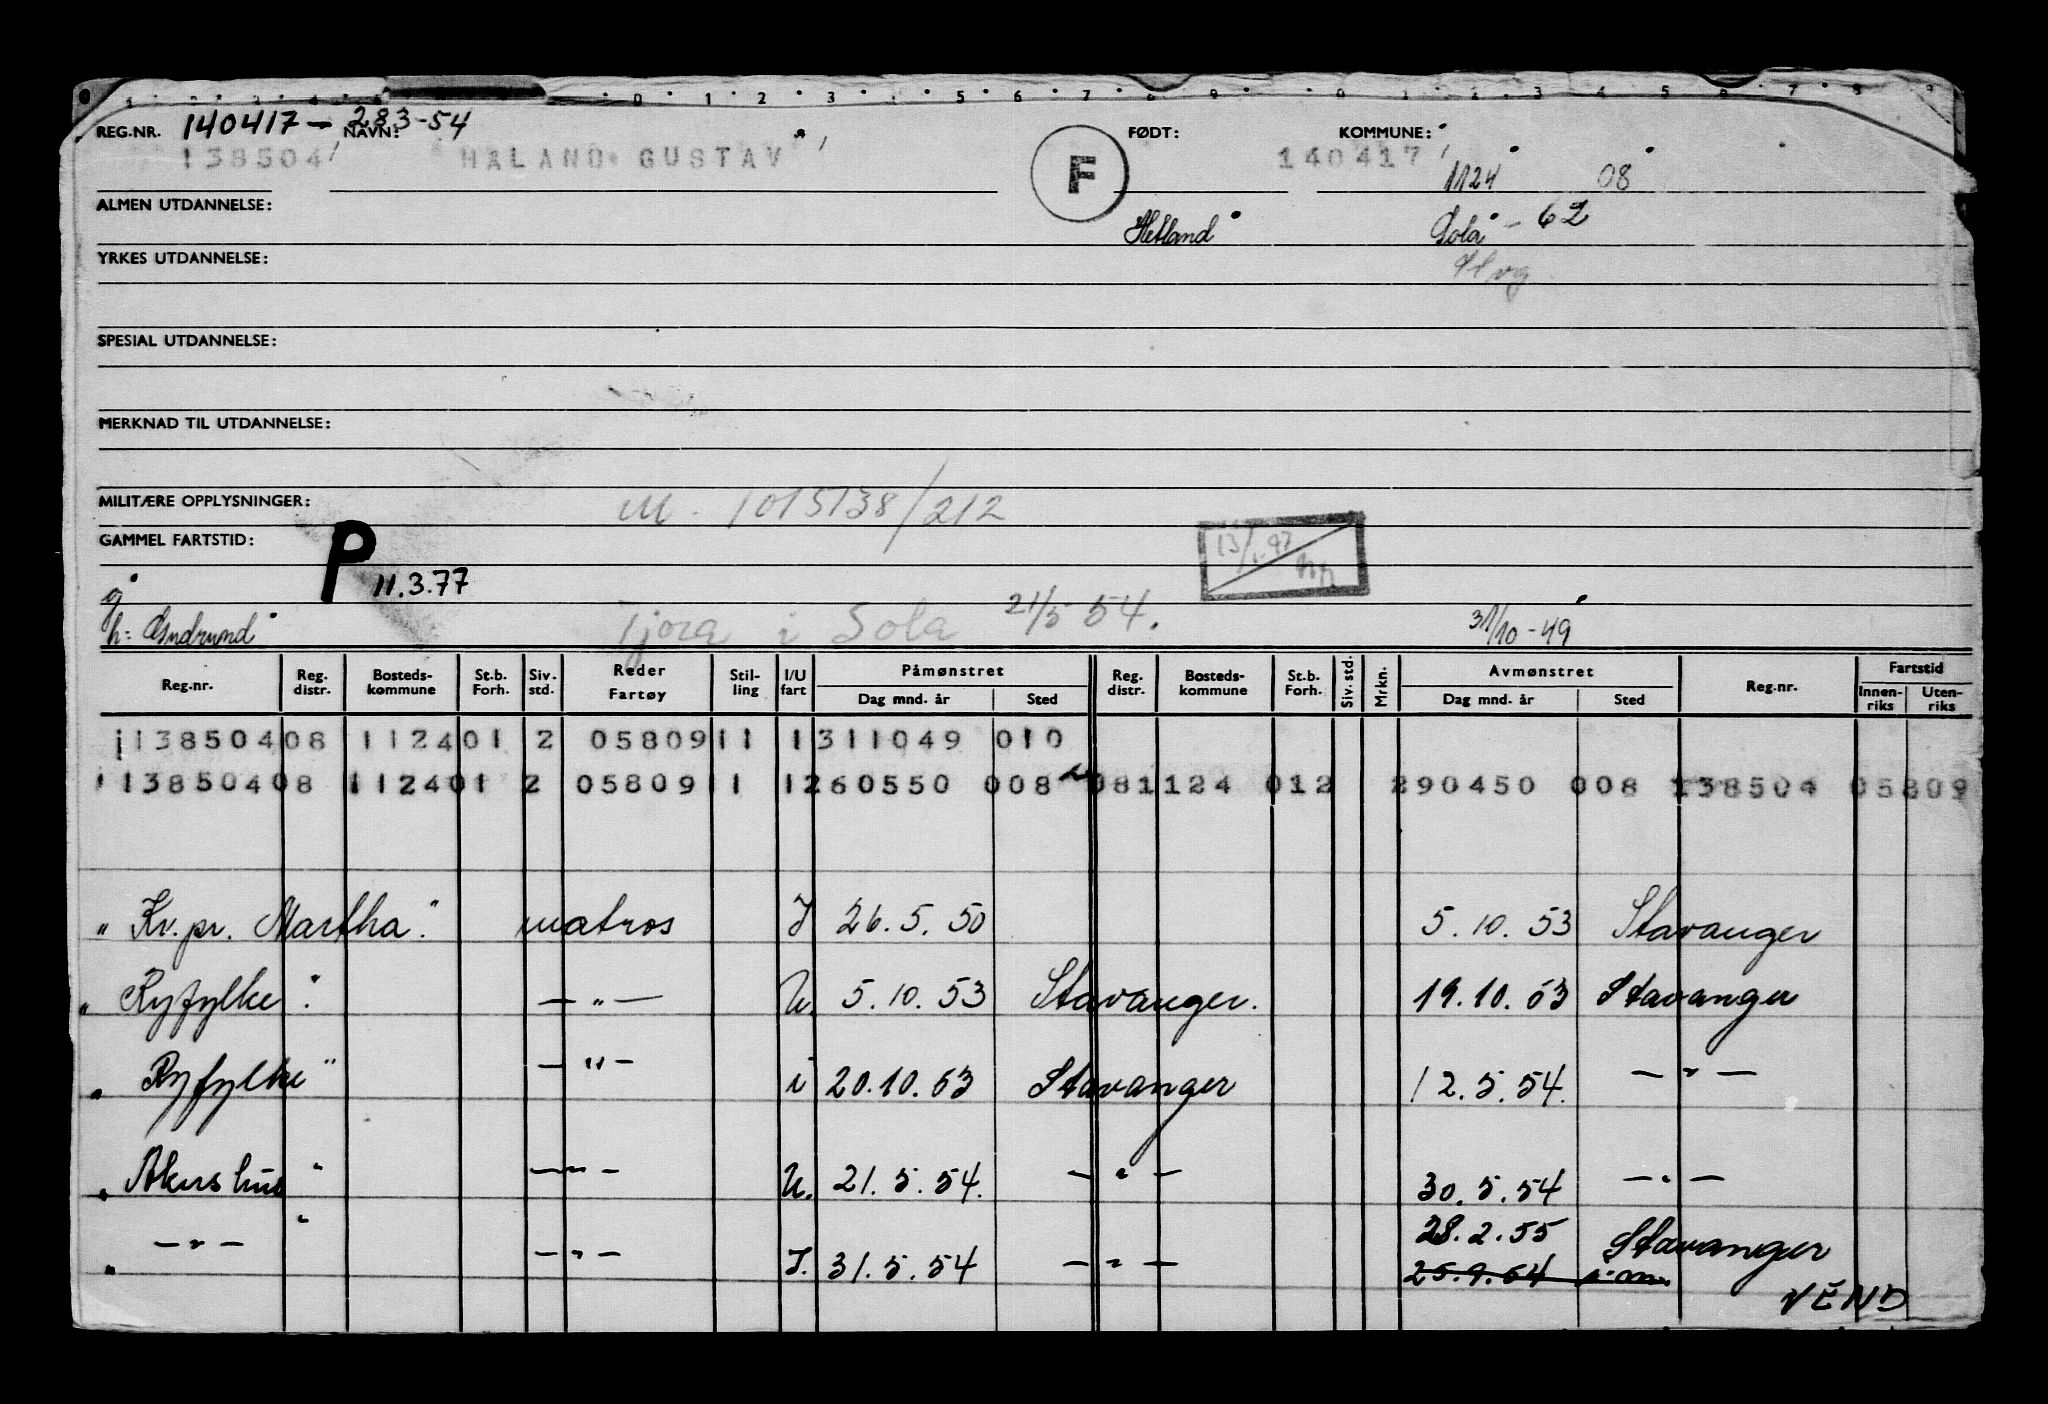 REG.NR. 140417-283-54 NAVN: FØDT: KOMMUNE:
138504 HALAND GUSTAV F 140417 1124 08
ALMEN UTDANNELSE: Hetland Sola - 62
YRKES UTDANNELSE:
SPESIAL UTDANNELSE:
MERKNAD TIL UTDANNELSE:
MILITÆRE OPPLYSNINGER: M. 1015138/212
GAMMEL FARTSTID:
P 11.3.77
g
h: Gudrund Tjora i Sola 21/5 54. 31/10-49
Reg.nr. Reg. distr. Bosteds-kommune St.b. Forh. Siv. std. Reder Fartøy Stil-ling I/U fart Påmønstret Dag mnd. år Sted Reg. distr. Bosteds-kommune St.b. Forh. Siv. std. Mrkn. Avmønstret Dag mnd. år Sted Reg.nr. Fartstid Innen-riks Uten-riks
113850408 112401 2 0580911 1311049 010
113850408 112401 2 0580911 1260550 008 081124 012 290450 008 138504 05809
" Kv. pr. Martha." matros I 26.5.50 5.10.53 Stavanger
" Ryfylke". — " — U. 5.10.53 Stavanger. 19.10.53 Stavanger
" Ryfylke" — " — i 20.10.53 Stavanger 12.5.54. — " —
" Akershus" — " — U. 21.5.54. — " — 30.5.54 — " —
28.2.55 Stavanger
" — " — " — " — I. 31.5.54 — " — 25.9.54
VEND